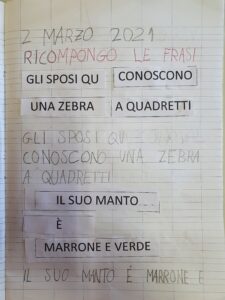 2 MARZO 2021
RICOMPONGO LE FRASI
GLI SPOSI QU CONOSCONO
UNA ZEBRA A QUADRETTI
GLI SPOSI QU
CONOSCONO UNA ZEBRA
A QUADRETTI
IL SUO MANTO
È
MARRONE E VERDE
IL SUO MANTO È MARRONE E